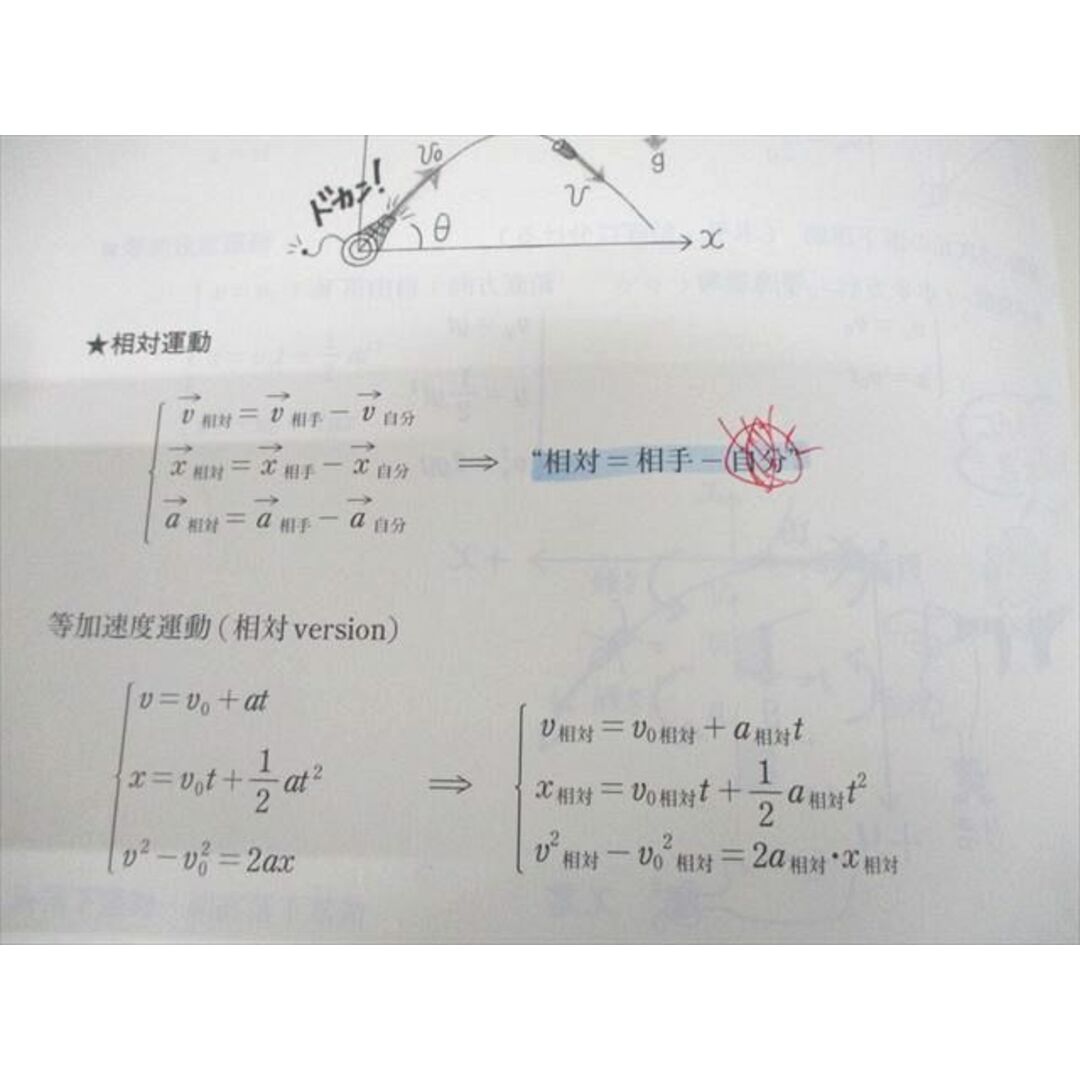 ドカン!
v₀
v
g
θ
x
★相対運動
v⃗相対 = v⃗相手 − v⃗自分
x⃗相対 = x⃗相手 − x⃗自分 ⟹ “相対 = 相手 − 自分”
a⃗相対 = a⃗相手 − a⃗自分
等加速度運動(相対version)
v = v₀ + at
x = v₀t + 1/2 at²
v² − v₀² = 2ax
⟹
v相対 = v₀相対 + a相対t
x相対 = v₀相対t + 1/2 a相対t²
v²相対 − v₀²相対 = 2a相対・x相対